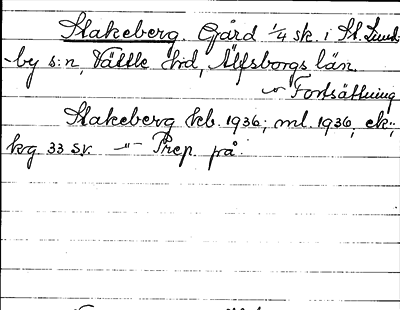 Stakeberg. Gård 1/4 sk. i St. Lund-
by s:n, Vättle hd, Älfsborgs län.
~ Fortsättning
Stakeberg kb. 1936; ml. 1936, ek.;
krg 33 sv. –"– Prep. på.